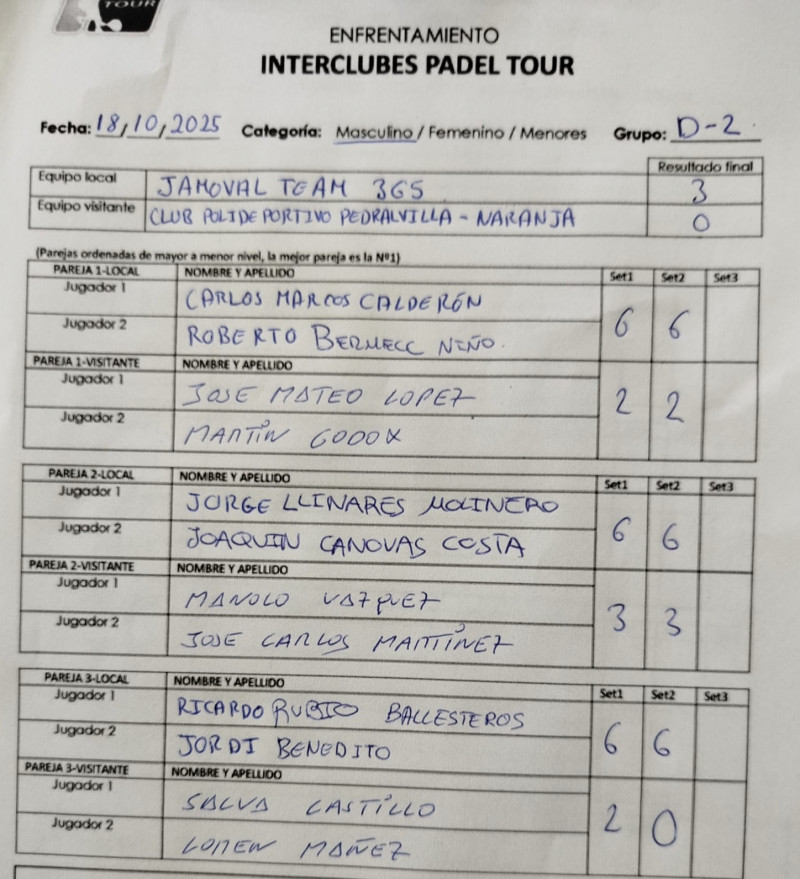 TOUR
ENFRENTAMIENTO
INTERCLUBES PADEL TOUR
Fecha: 18/10/2025 Categoría: Masculino / Femenino / Menores Grupo: D-2
Resultado final
Equipo local JAMOVAL TEAM 365 3
Equipo visitante CLUB POLIDEPORTIVO PEDRALVILLA - NARANJA 0
(Parejas ordenadas de mayor a menor nivel, la mejor pareja es la Nº1)
PAREJA 1-LOCAL NOMBRE Y APELLIDO Set1 Set2 Set3
Jugador 1 CARLOS MARCOS CALDERÓN
Jugador 2 ROBERTO NIÑO. 6 6
PAREJA 1-VISITANTE NOMBRE Y APELLIDO
Jugador 1 JOSE MATEO LOPEZ
Jugador 2 MARTÍN 2 2
PAREJA 2-LOCAL NOMBRE Y APELLIDO Set1 Set2 Set3
Jugador 1 JORGE LLINARES MOLINERO
Jugador 2 JOAQUIN CANOVAS COSTA 6 6
PAREJA 2-VISITANTE NOMBRE Y APELLIDO
Jugador 1 MANOLO VAZQUEZ
Jugador 2 JOSE CARLOS MARTÍNEZ 3 3
PAREJA 3-LOCAL NOMBRE Y APELLIDO Set1 Set2 Set3
Jugador 1 RICARDO RUBIO BALLESTEROS
Jugador 2 JORDI BENEDITO 6 6
PAREJA 3-VISITANTE NOMBRE Y APELLIDO
Jugador 1 SALVA CASTILLO
Jugador 2 LOREN MAÑEZ 2 0